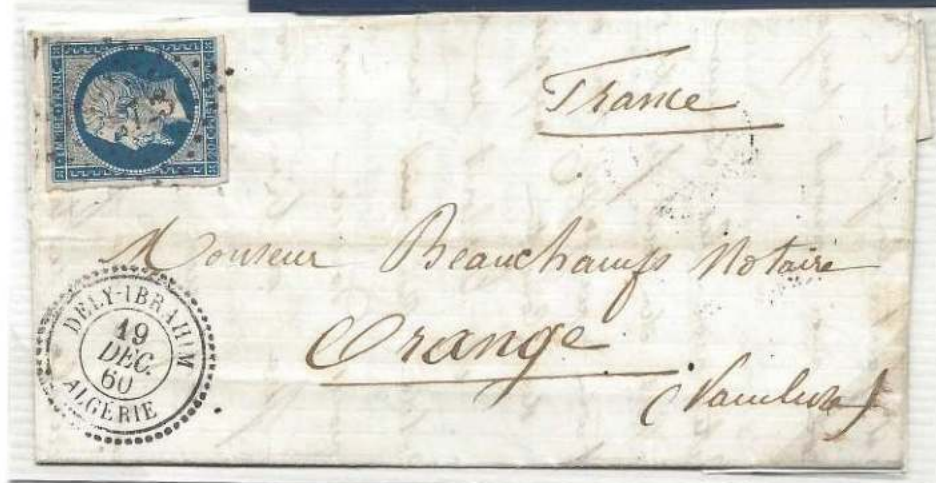 EMPIRE FRANC
France
Monsieur Beauchamps Notaire
Orange
(Vaucluse)
DELY-IBRAHIM
19
DEC.
60
ALGERIE